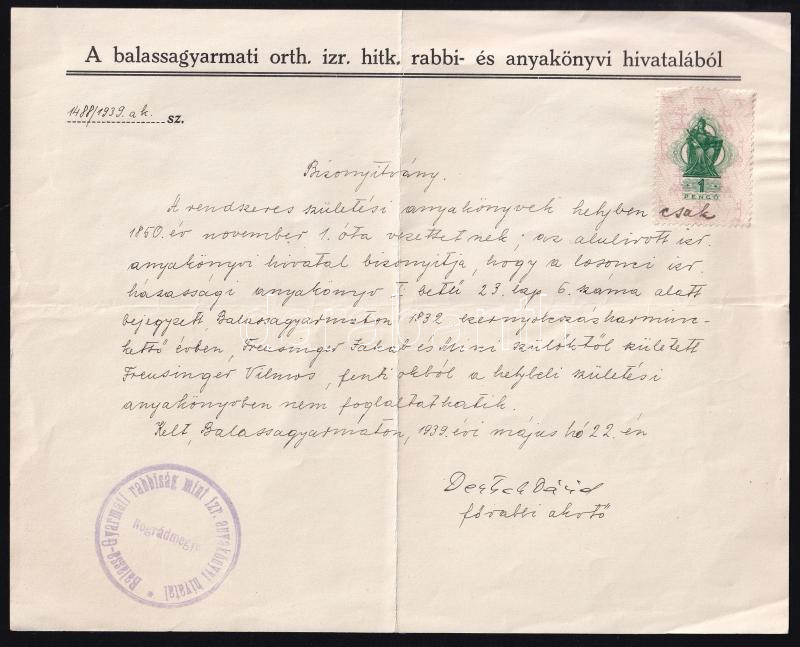 A balassagyarmati orth. izr. hitk. rabbi- és anyakönyvi hivatalából
1488/1939. ak. sz.
1
PENGŐ
Bizonyitvány.
A rendszeres születési anyakönyvek helyben csak
1850. év november 1. óta vezettetnek; az alulirott izr.
anyakönyvi hivatal bizonyitja, hogy a losonci izr.
házassági anyakönyv I. betű 23. lap 6. száma alatt
bejegyzett, Balassagyarmaton 1832 ezernyolcszázharminc-
kettő évben, Freusinger Jakab és szülőktől született
Freusinger Vilmos, fenti okból a helybeli születési
anyakönyvben nem foglaltathatik.
Kelt, Balassagyarmaton, 1939. évi május hó 22. én
Deutsch Dávid
főrabbi akvtő
Balassa-Gyarmati rabbiság mint izr. anyakönyvi hivatal *
Nográdmegye